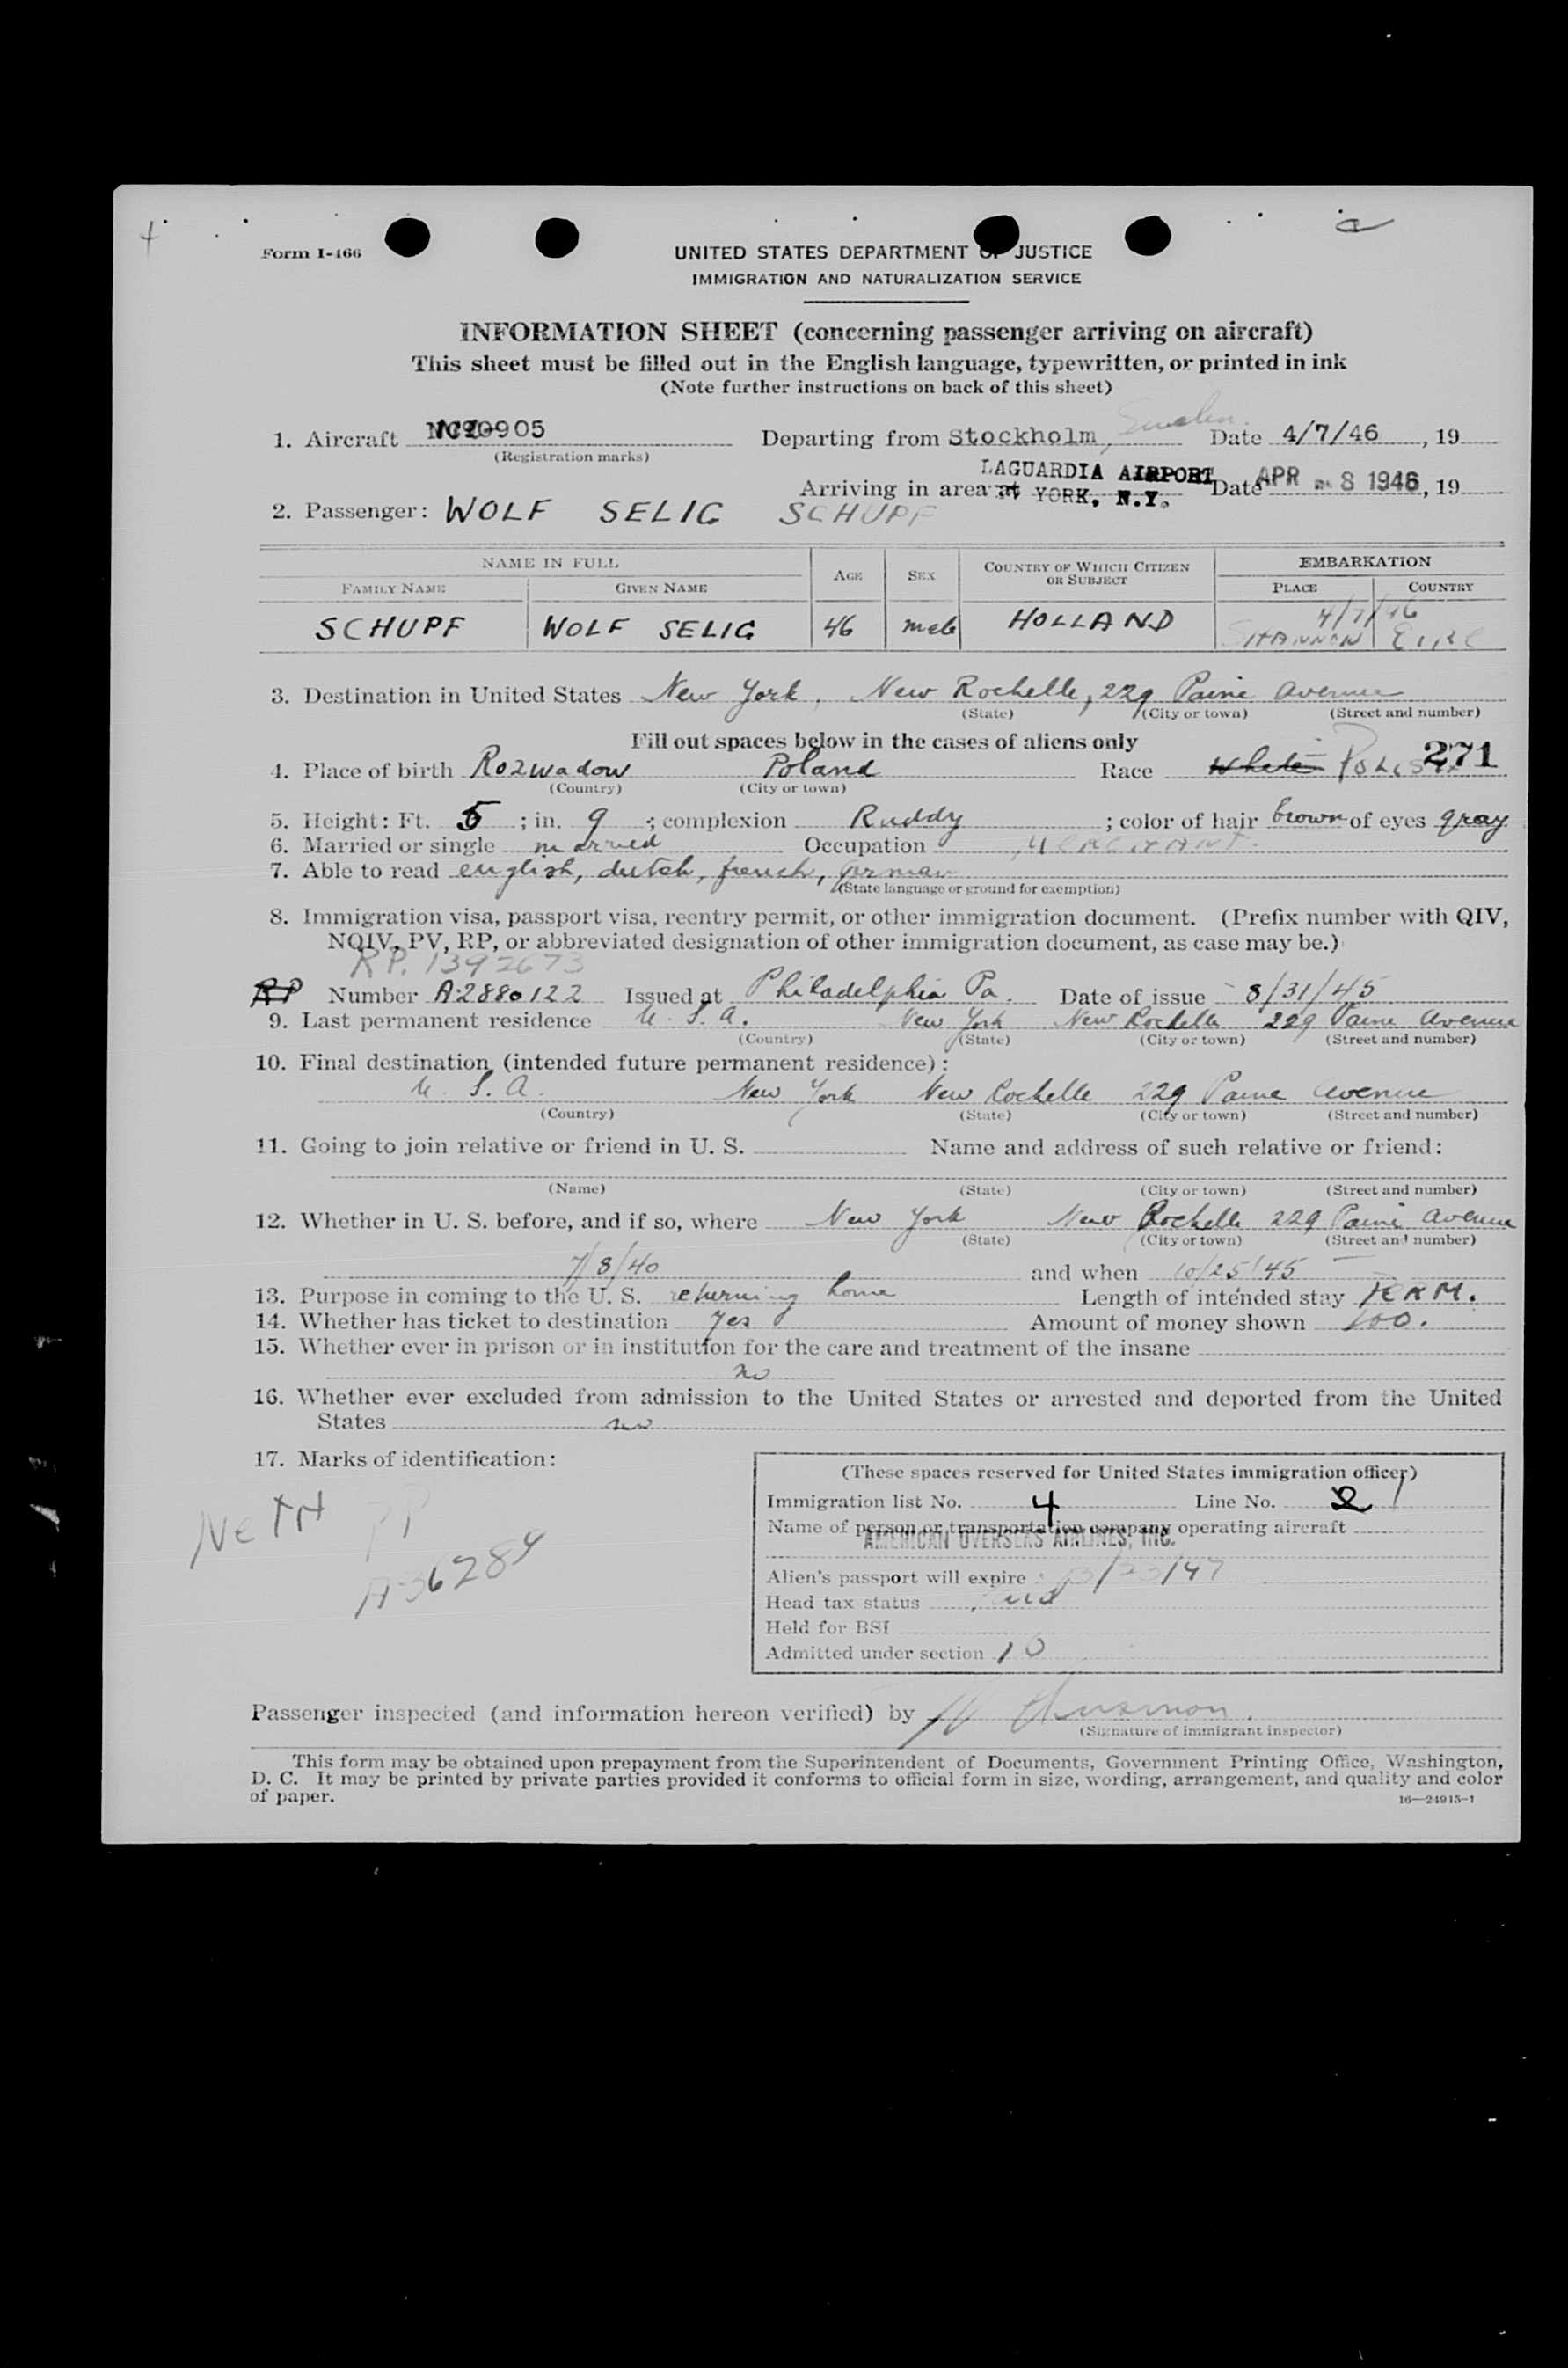 Form I-466
UNITED STATES DEPARTMENT OF JUSTICE
IMMIGRATION AND NATURALIZATION SERVICE
INFORMATION SHEET (concerning passenger arriving on aircraft)
This sheet must be filled out in the English language, typewritten, or printed in ink
(Note further instructions on back of this sheet)
1. Aircraft 905 Departing from Stockholm, Sweden Date 4/7/46, 19
(Registration marks)
LAGUARDIA AIRPORT
Arriving in area at YORK, N.Y. Date APR 8 1946, 19
2. Passenger: WOLF SELIG SCHUPF
NAME IN FULL AGE SEX COUNTRY OF WHICH CITIZEN OR SUBJECT EMBARKATION
FAMILY NAME GIVEN NAME PLACE COUNTRY
4/7/46
SCHUPF WOLF SELIG 46 male HOLLAND SHANNON EIRE
3. Destination in United States New York, New Rochelle, 229 Paine Avenue
(State) (City or town) (Street and number)
Fill out spaces below in the cases of aliens only
271
4. Place of birth Rozwadow Poland Race White Polish
(Country) (City or town)
5. Height: Ft. 5; in. 9; complexion Ruddy; color of hair brown of eyes gray
6. Married or single married Occupation MERCHANT.
7. Able to read english, dutch, french, german
(State language or ground for exemption)
8. Immigration visa, passport visa, reentry permit, or other immigration document. (Prefix number with QIV,
NQIV, PV, RP, or abbreviated designation of other immigration document, as case may be.)
RP. 1392673
RP Number A2880122 Issued at Philadelphia Pa. Date of issue 8/31/45
9. Last permanent residence U. S. A. New York New Rochelle 229 Paine Avenue
(Country) (State) (City or town) (Street and number)
10. Final destination (intended future permanent residence):
U. S. A. New York New Rochelle 229 Paine Avenue
(Country) (State) (City or town) (Street and number)
11. Going to join relative or friend in U. S. Name and address of such relative or friend:
(Name) (State) (City or town) (Street and number)
12. Whether in U. S. before, and if so, where New York New Rochelle 229 Paine Avenue
(State) (City or town) (Street and number)
7/8/40 and when 10/25/45
13. Purpose in coming to the U. S. returning home Length of intended stay PERM.
14. Whether has ticket to destination yes Amount of money shown 100.
15. Whether ever in prison or in institution for the care and treatment of the insane
no
16. Whether ever excluded from admission to the United States or arrested and deported from the United
States no
17. Marks of identification:
NETH PP
A36284
(These spaces reserved for United States immigration officer)
Immigration list No. 4 Line No. 2 1
Name of person or transportation company operating aircraft
AMERICAN OVERSEAS AIRLINES, INC.
Alien's passport will expire /47
Head tax status Paid
Held for BSI
Admitted under section 10
Passenger inspected (and information hereon verified) by
(Signature of immigrant inspector)
This form may be obtained upon prepayment from the Superintendent of Documents, Government Printing Office, Washington,
D. C. It may be printed by private parties provided it conforms to official form in size, wording, arrangement, and quality and color
of paper.
16—24915-1